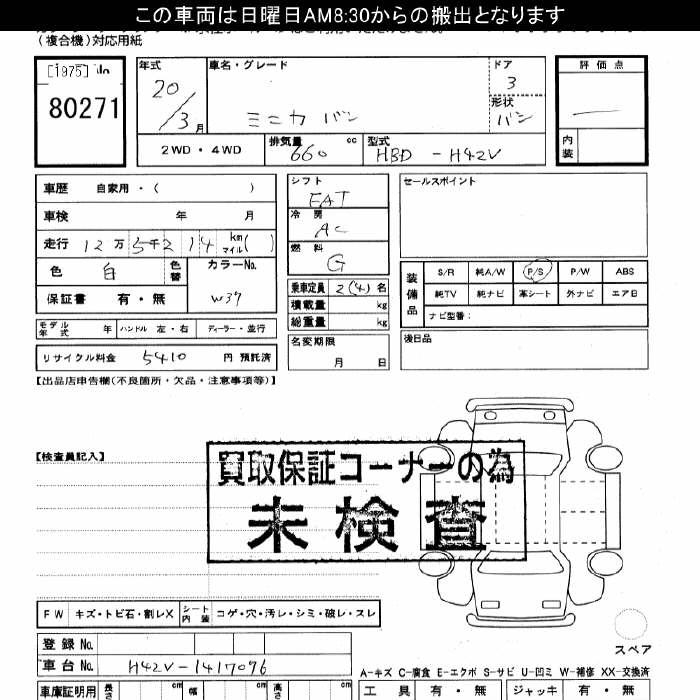 この車両は日曜日AM8:30からの搬出となります
(複合機)対応用紙
[1975]
80271
年式
20/3月
車名・グレード
ミニカバン
ドア
3
形状
バン
評価点
内装
2WD・4WD
排気量
660 cc
型式
HBD-H42V
車歴 自家用・( )
車検 年 月
走行 12万5千214 km マイル( )
色 白 色替
カラーNo.
W37
保証書 有・無
モデル年式 年 ハンドル 左・右 ディーラー・並行
リサイクル料金 5410 円 預託済
シフト
FAT
冷房
AC
燃料
G
乗車定員 2(4)名
積載量 kg
総重量 kg
名変期限
月 日
セールスポイント
装備品
S/R 純A/W P/S P/W ABS
純TV 純ナビ 革シート 外ナビ エアB
ナビ型番:
後日品
【出品店申告欄(不良箇所・欠品・注意事項等)】
【検査員記入】
買取保証コーナーの為
未検査
FW キズ・トビ石・割レX シート内装 コゲ・穴・汚レ・シミ・破レ・スレ
登録No.
車台No. H42V-1417096
スペア
A-キズ C-腐食 E-エクボ S-サビ U-凹ミ W-補修 XX-交換済
車庫証明用 長さ cm 幅 cm 高さ cm
工具 有・無 ジャッキ 有・無